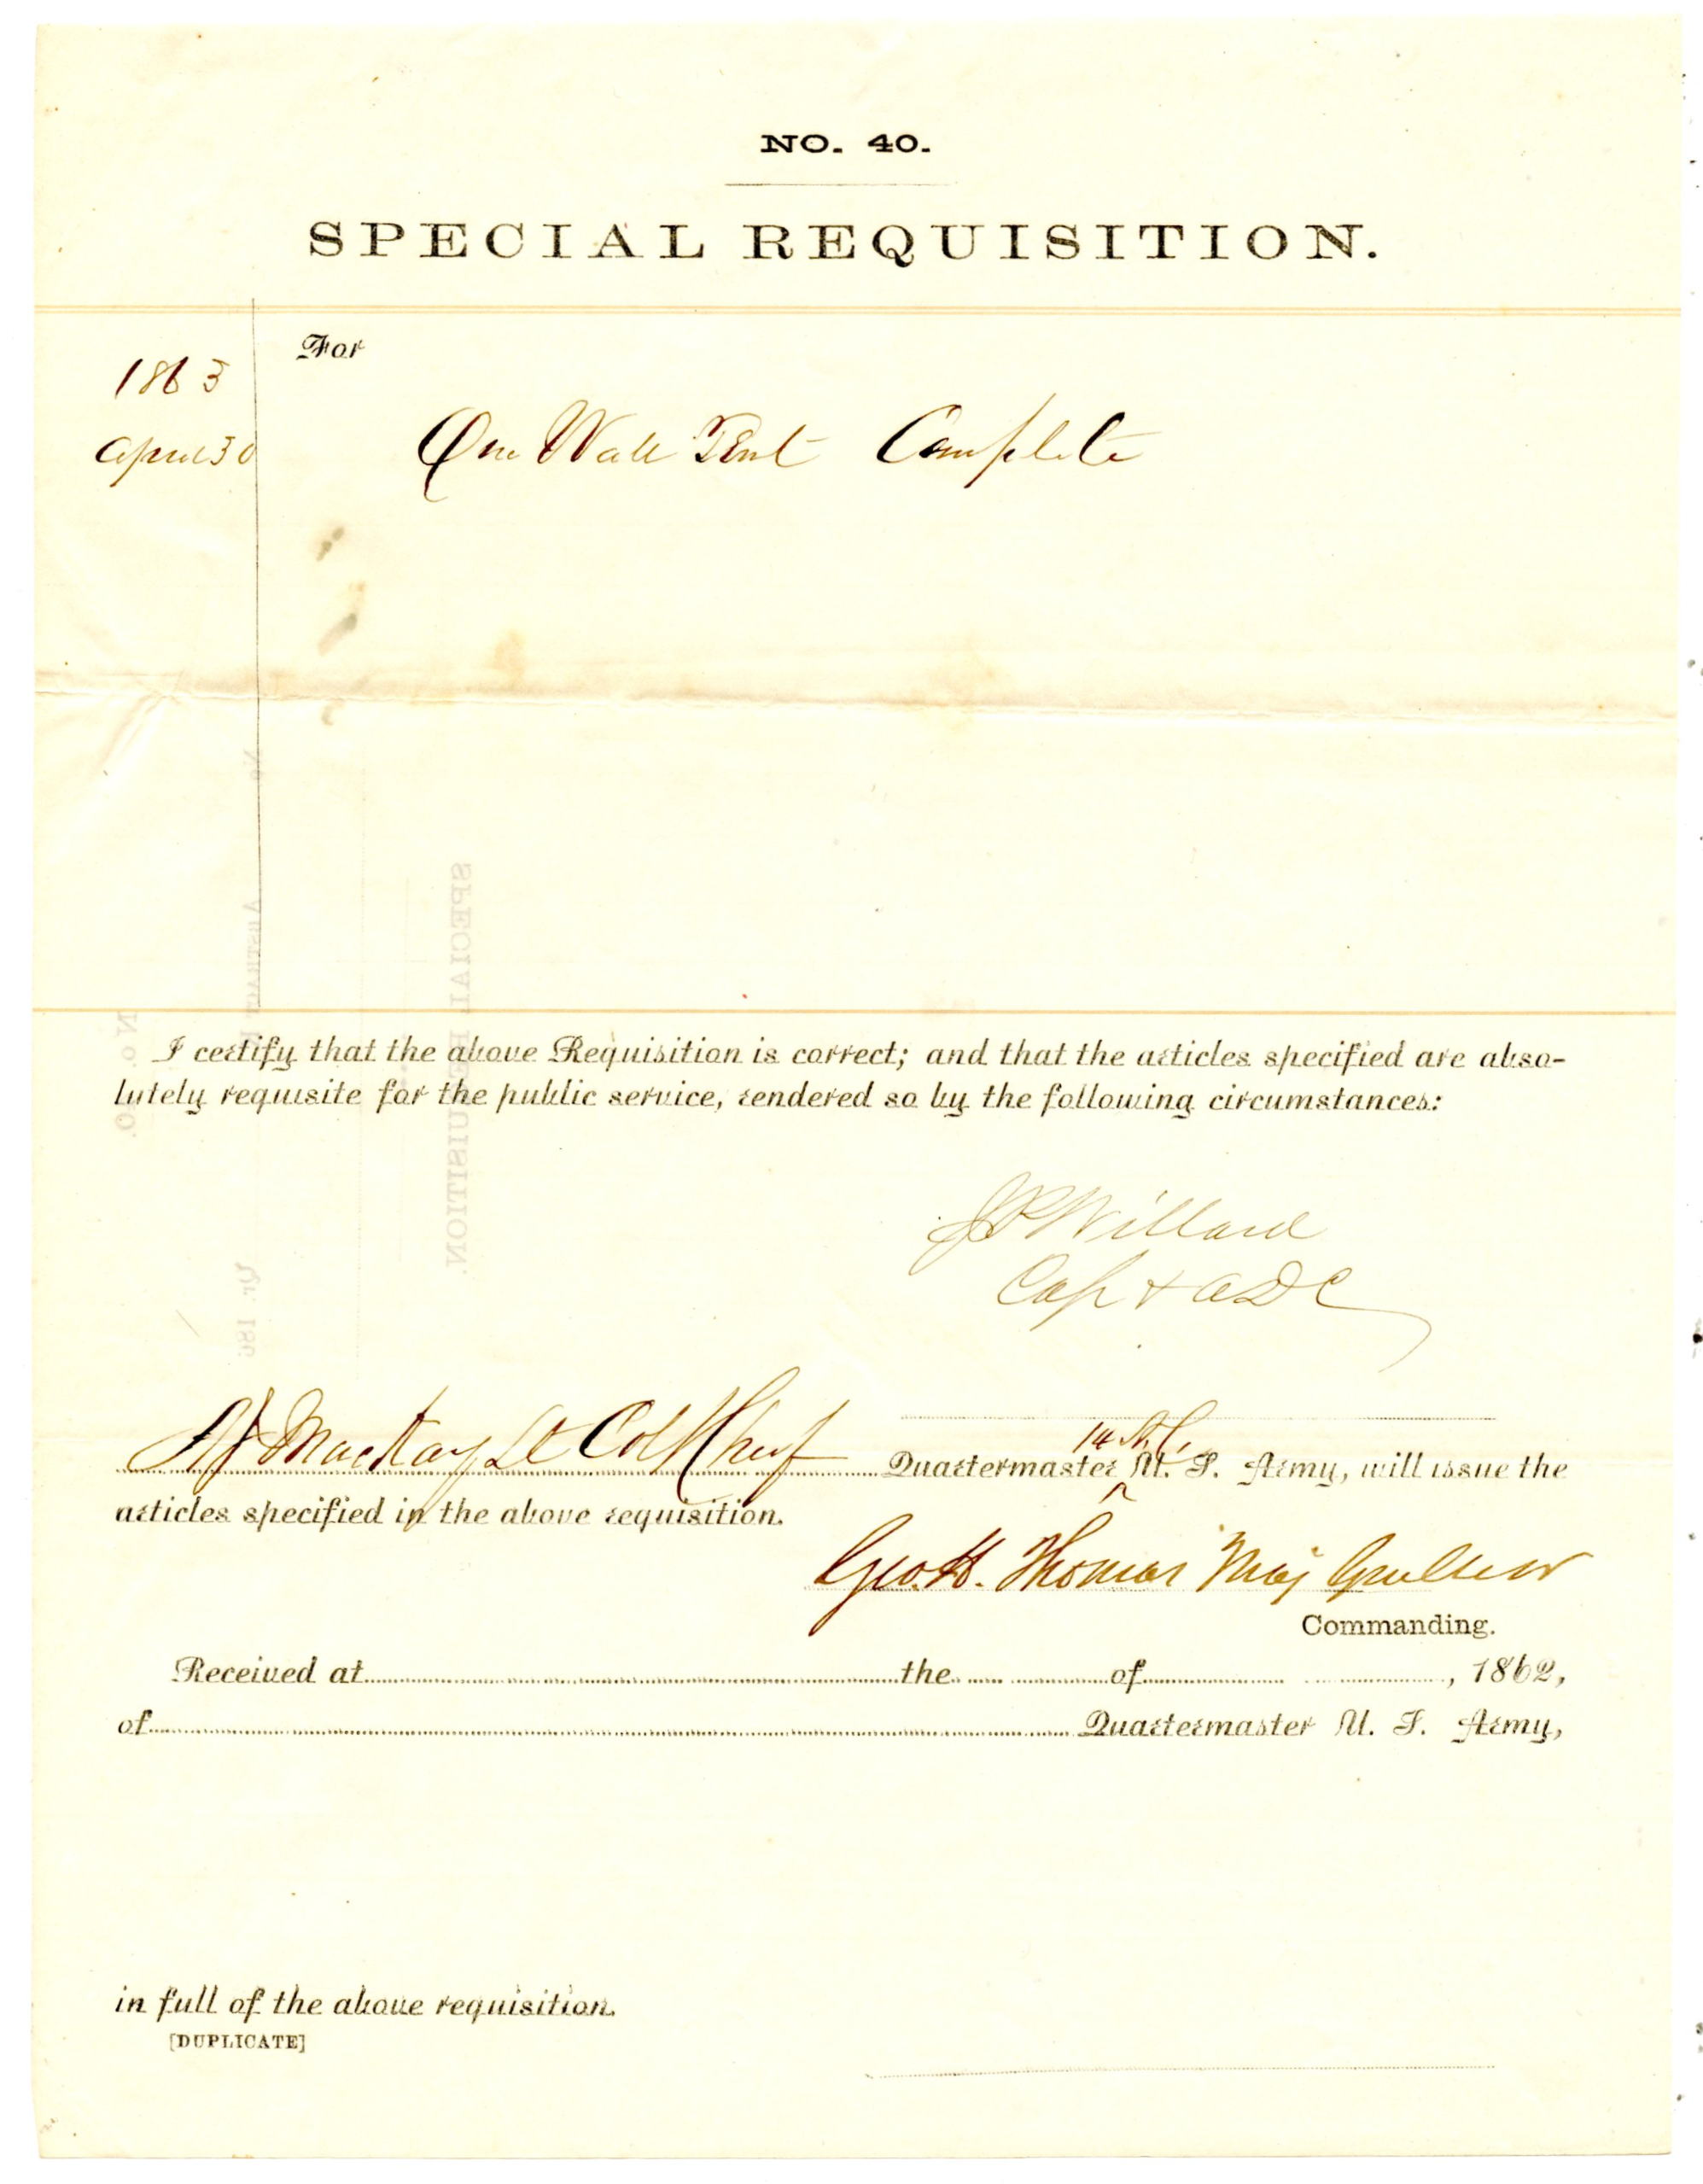 NO. 40.
SPECIAL REQUISITION.
For
1863
April 30
One Wall Tent Complete
I certify that the above Requisition is correct; and that the articles specified are abso-
lutely requisite for the public service, rendered so by the following circumstances:
J P Willard
Cap & ADC
A J Mackay Lt Col & Chief Quartermaster 14 A. C. U. S. Army, will issue the
articles specified in the above requisition.
Geo. H. Thomas Maj Genl
Commanding.
Received at the of , 1862,
of Quartermaster U. S. Army,
in full of the above requisition.
[DUPLICATE]